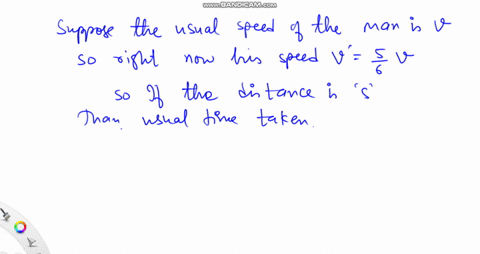 WWW.BANDICAM.COM
Suppose the usual speed of the man is v
so right now his speed v' = 5/6 v
so If the distance is 's'
Than, usual time taken.